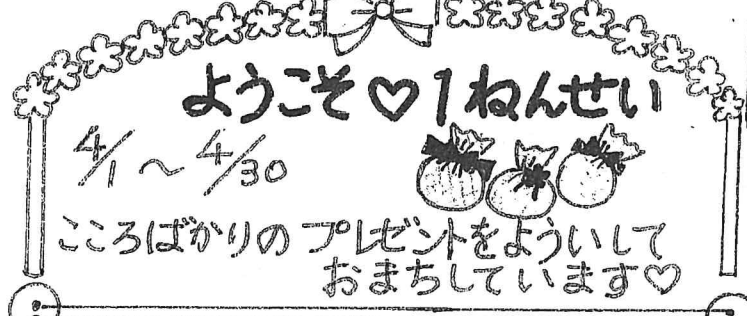 ようこそ♡1ねんせい
4/1～4/30
こころばかりの プレゼントをよういして
おまちしています♡